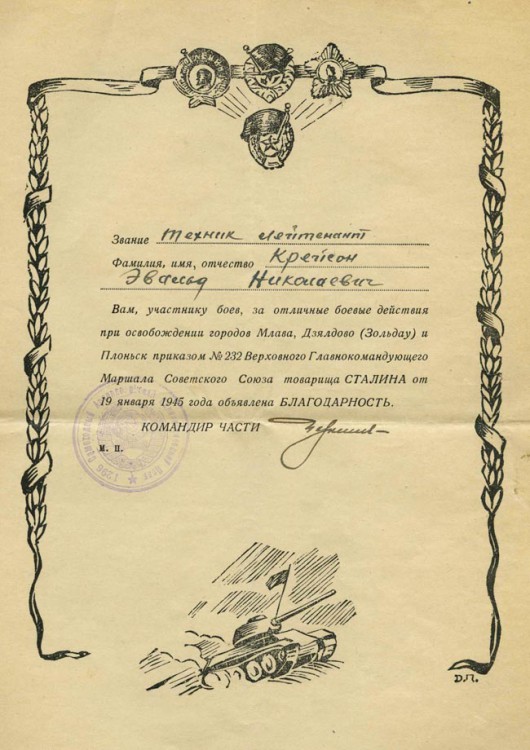 Звание Техник лейтенант
Фамилия, имя, отчество Крейсон
Эвальд Николаевич
Вам, участнику боев, за отличные боевые действия
при освобождении городов Млава, Дзялдово (Зольдау) и
Плоньск приказом № 232 Верховного Главнокомандующего
Маршала Советского Союза товарища СТАЛИНА от
19 января 1945 года объявлена БЛАГОДАРНОСТЬ.
КОМАНДИР ЧАСТИ
М. П.
1296
Д.П.